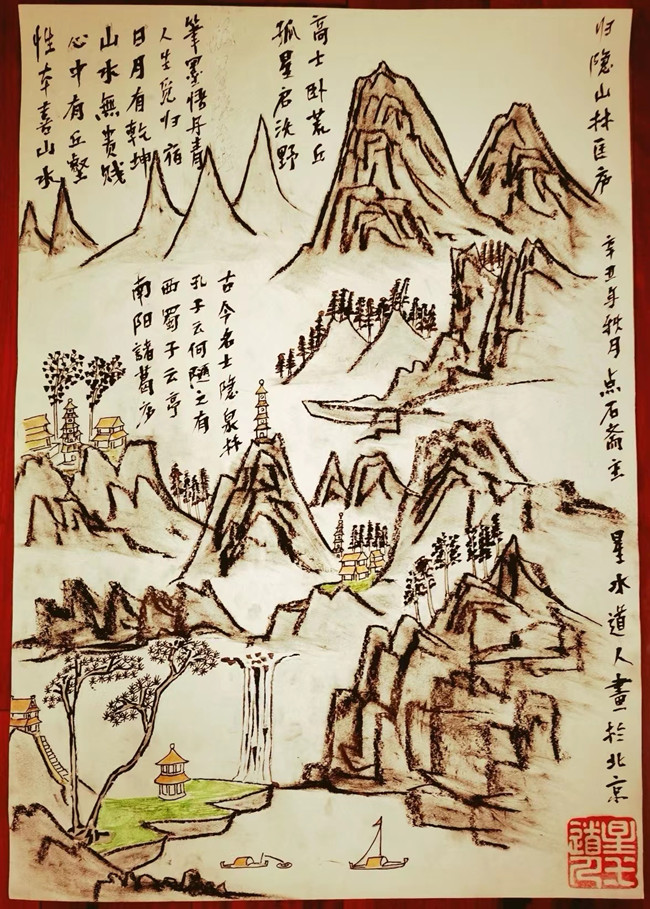 归隐山林匡庐
辛丑年秋月 点石斋主 星水道人畫於北京
高士卧荒丘
孤星居沃野
筆墨悟丹青
人生觅归宿
日月有乾坤
山水無贵贱
心中有丘壑
性本喜山水
古今名士隐泉林
孔子云何陋之有
西蜀子云亭
南阳諸葛庐
星水道人